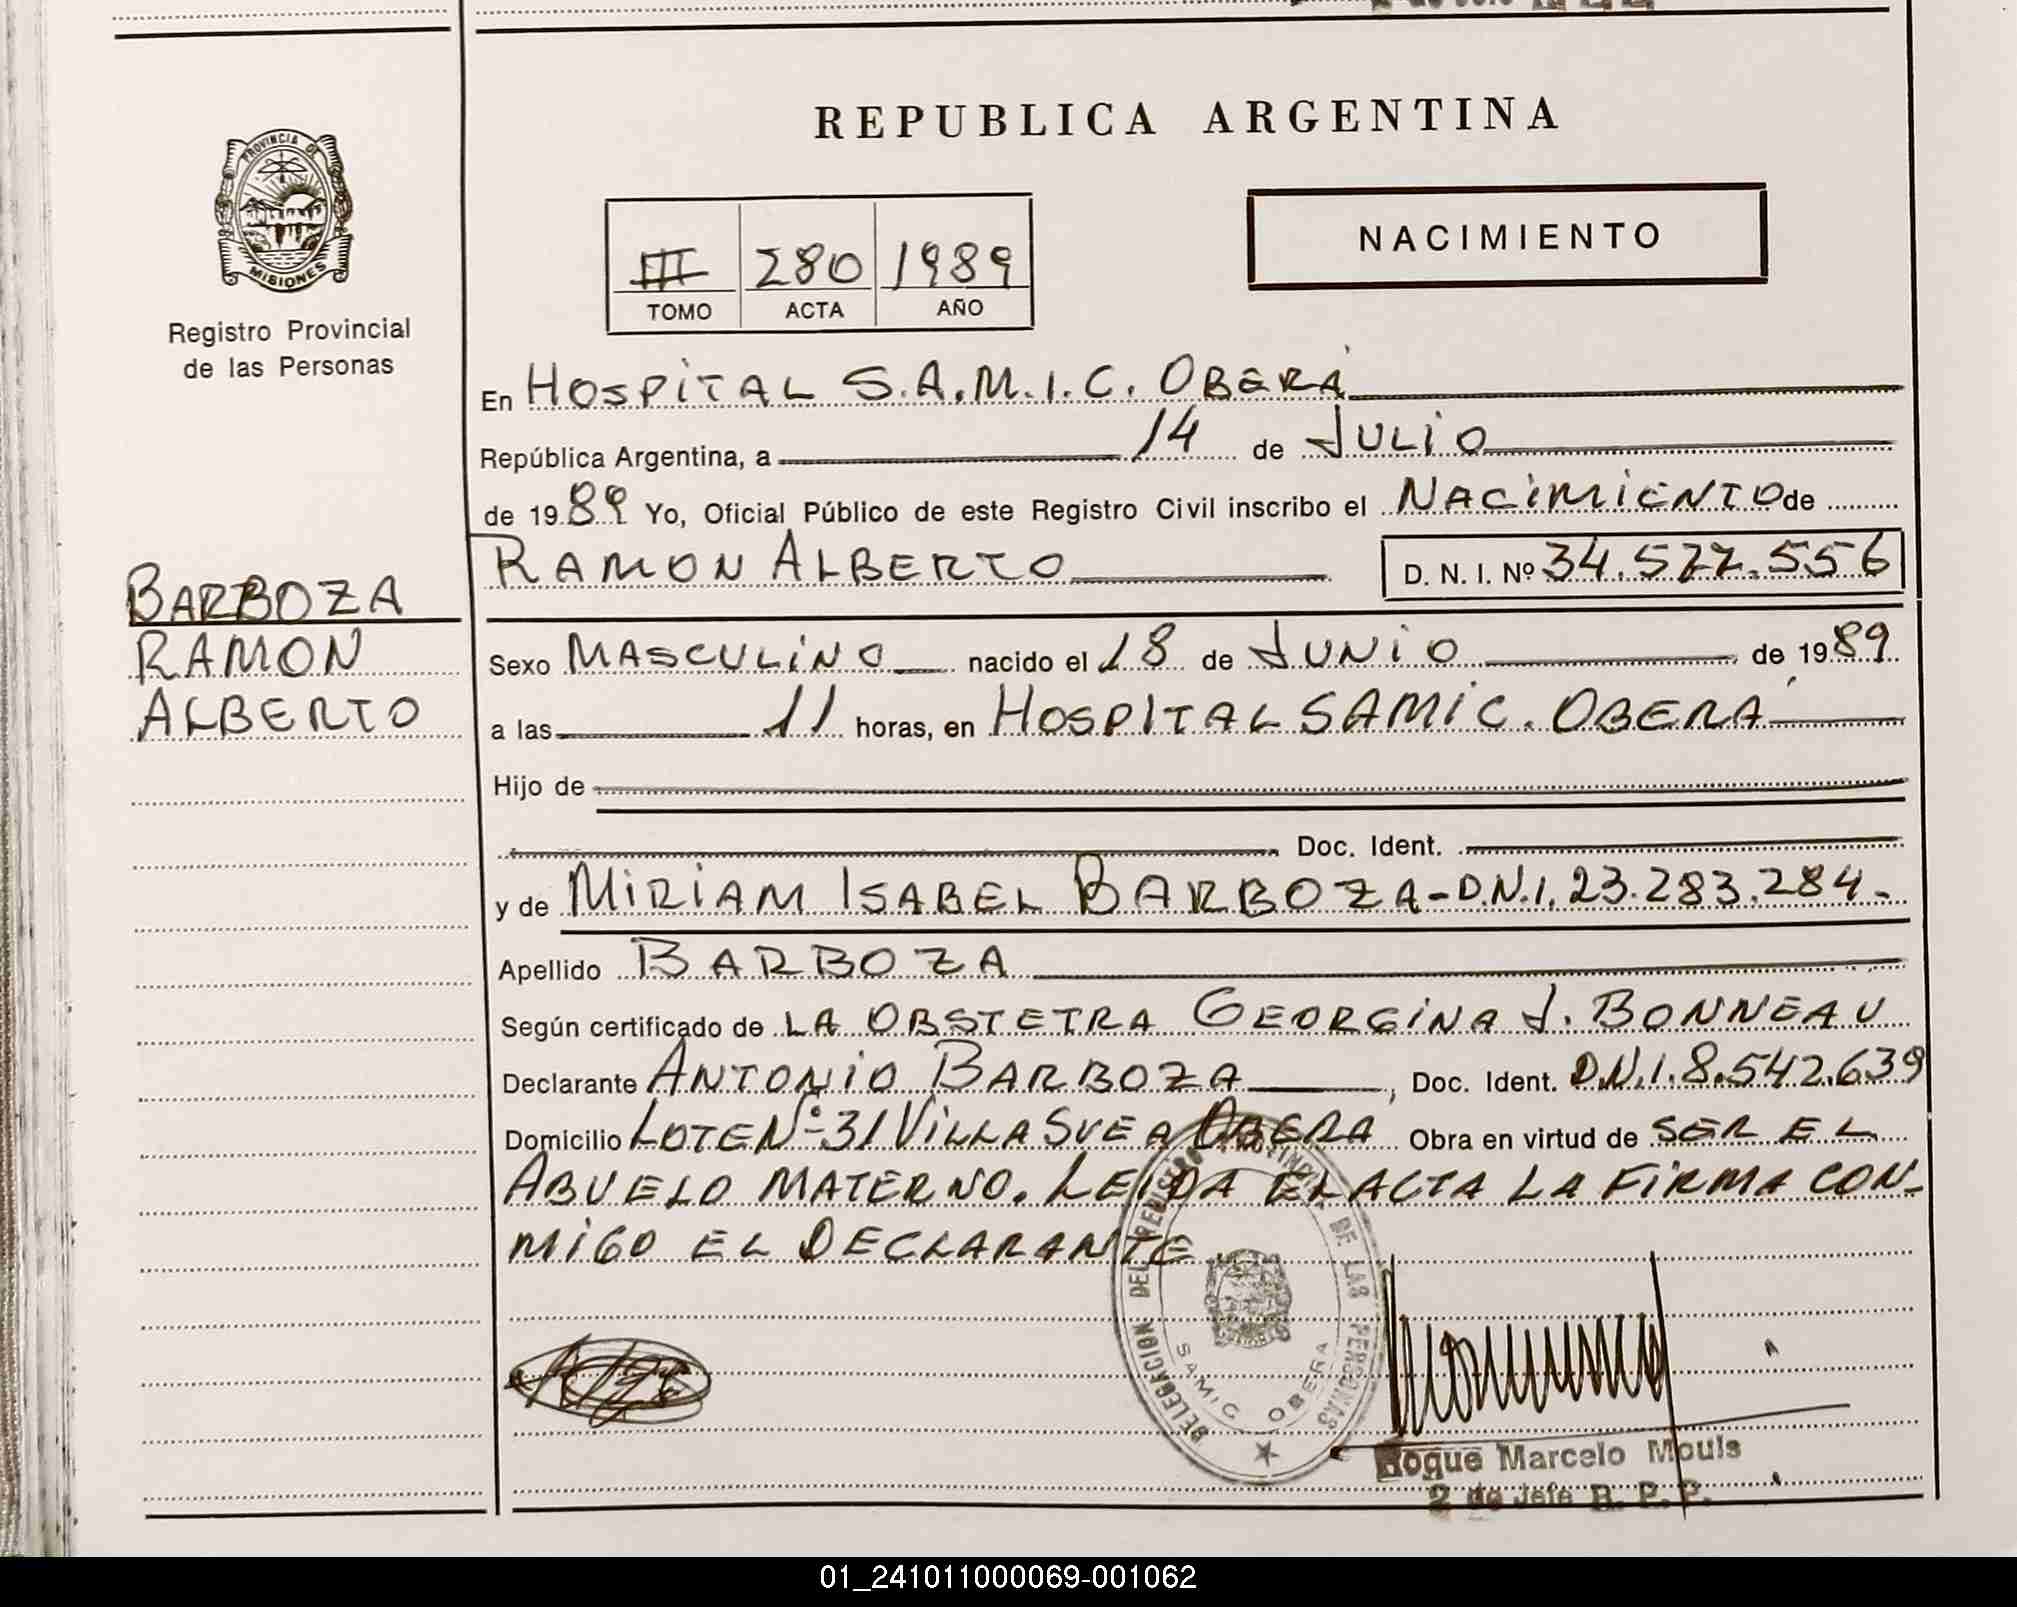 REPUBLICA ARGENTINA
PROVINCIA DE MISIONES
Registro Provincial
de las Personas
III 280 1989
TOMO ACTA AÑO
NACIMIENTO
En HOSPITAL S.A.M.I.C. OBERÁ
República Argentina, a 14 de JULIO
de 1989 Yo, Oficial Público de este Registro Civil inscribo el NACIMIENTO de
RAMON ALBERTO D. N. I. Nº 34.522.556
BARBOZA
RAMON
ALBERTO
Sexo MASCULINO nacido el 18 de JUNIO de 1989
a las 11 horas, en HOSPITAL SAMIC. OBERÁ
Hijo de
Doc. Ident.
y de MIRIAM ISABEL BARBOZA - D.N.I. 23.283.284-
Apellido BARBOZA
Según certificado de LA OBSTETRA GEORGINA J. BONNEAU
Declarante ANTONIO BARBOZA, Doc. Ident. D.N.I. 8.542.639
Domicilio LOTE Nº 31 VILLA SVEA OBERA Obra en virtud de SER EL
ABUELO MATERNO. LEIDA EL ACTA LA FIRMA CON-
MIGO EL DECLARANTE
DELEGACION DEL REGISTRO PROVINCIAL DE LAS PERSONAS
SAMIC OBERA
Roque Marcelo Mouls
2 do Jefe R. P. P.
01_241011000069-001062